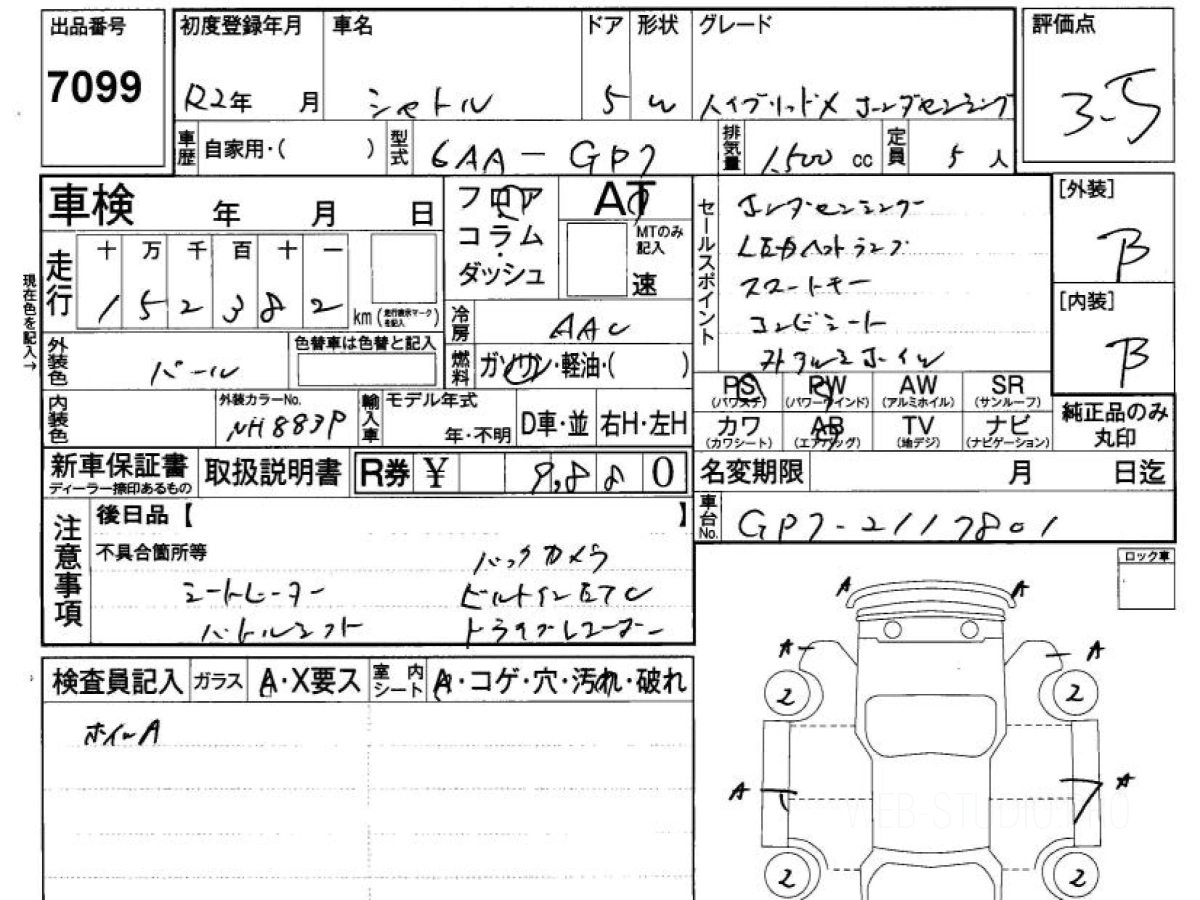 出品番号 初度登録年月 車名 ドア 形状 グレード 評価点
7099 R2年 月 シャトル 5 W ハイブリッドX ホンダセンシング 3.5
車歴 自家用・( ) 型式 6AA-GP7 排気量 1,500 cc 定員 5 人
車検 年 月 日 フロア AT セールスポイント ホンダセンシング [外装]
コラム MTのみ記入 LEDヘッドランプ B
走行 十 万 千 百 十 一 ダッシュ 速 スマートキー [内装]
1 5 2 3 8 2 km (走行表示マークを記入) 冷房 AAC コンビシート B
現在色を記入→
外装色 パール 色替車は色替と記入 燃料 ガソリン・軽油・( ) アルミホイル
PS PW AW SR 純正品のみ丸印
(パワステ) (パワーウインド) (アルミホイル) (サンルーフ)
内装色 外装カラーNo. NH883P 輸入車 モデル年式 年・不明 D車・並 右H・左H
カワ AB TV ナビ
(カワシート) (エアバッグ) (地デジ) (ナビゲーション)
新車保証書 取扱説明書 R券 ¥ 9,88 0 名変期限 月 日迄
ディーラー捺印あるもの
注意事項 後日品【 】 車台No. GP7-2117801
不具合箇所等 バックカメラ ロック車
シートヒーター ビルトインETC
パドルシフト ドライブレコーダー
検査員記入 ガラス A・X要ス 室内シート A・コゲ・穴・汚れ・破れ
ホイルA
A A
A A
2 2
A A
WEB-STUDIO.PRO
2 2